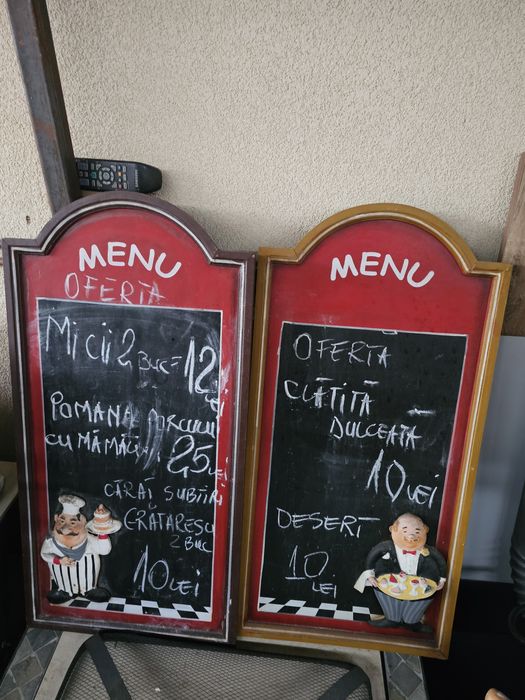 MENU
OFERTA
MICII 2 BUC = 12 LEI
POMANA PORCULUI
CU MĂMĂLI 25 LEI
CÂRĂI SUBȚIRI
GRĂTARESU
2 BUC
10 LEI
MENU
OFERTA
CLĂTITĂ
DULCEAȚĂ
10 LEI
DESERT
10
LEI